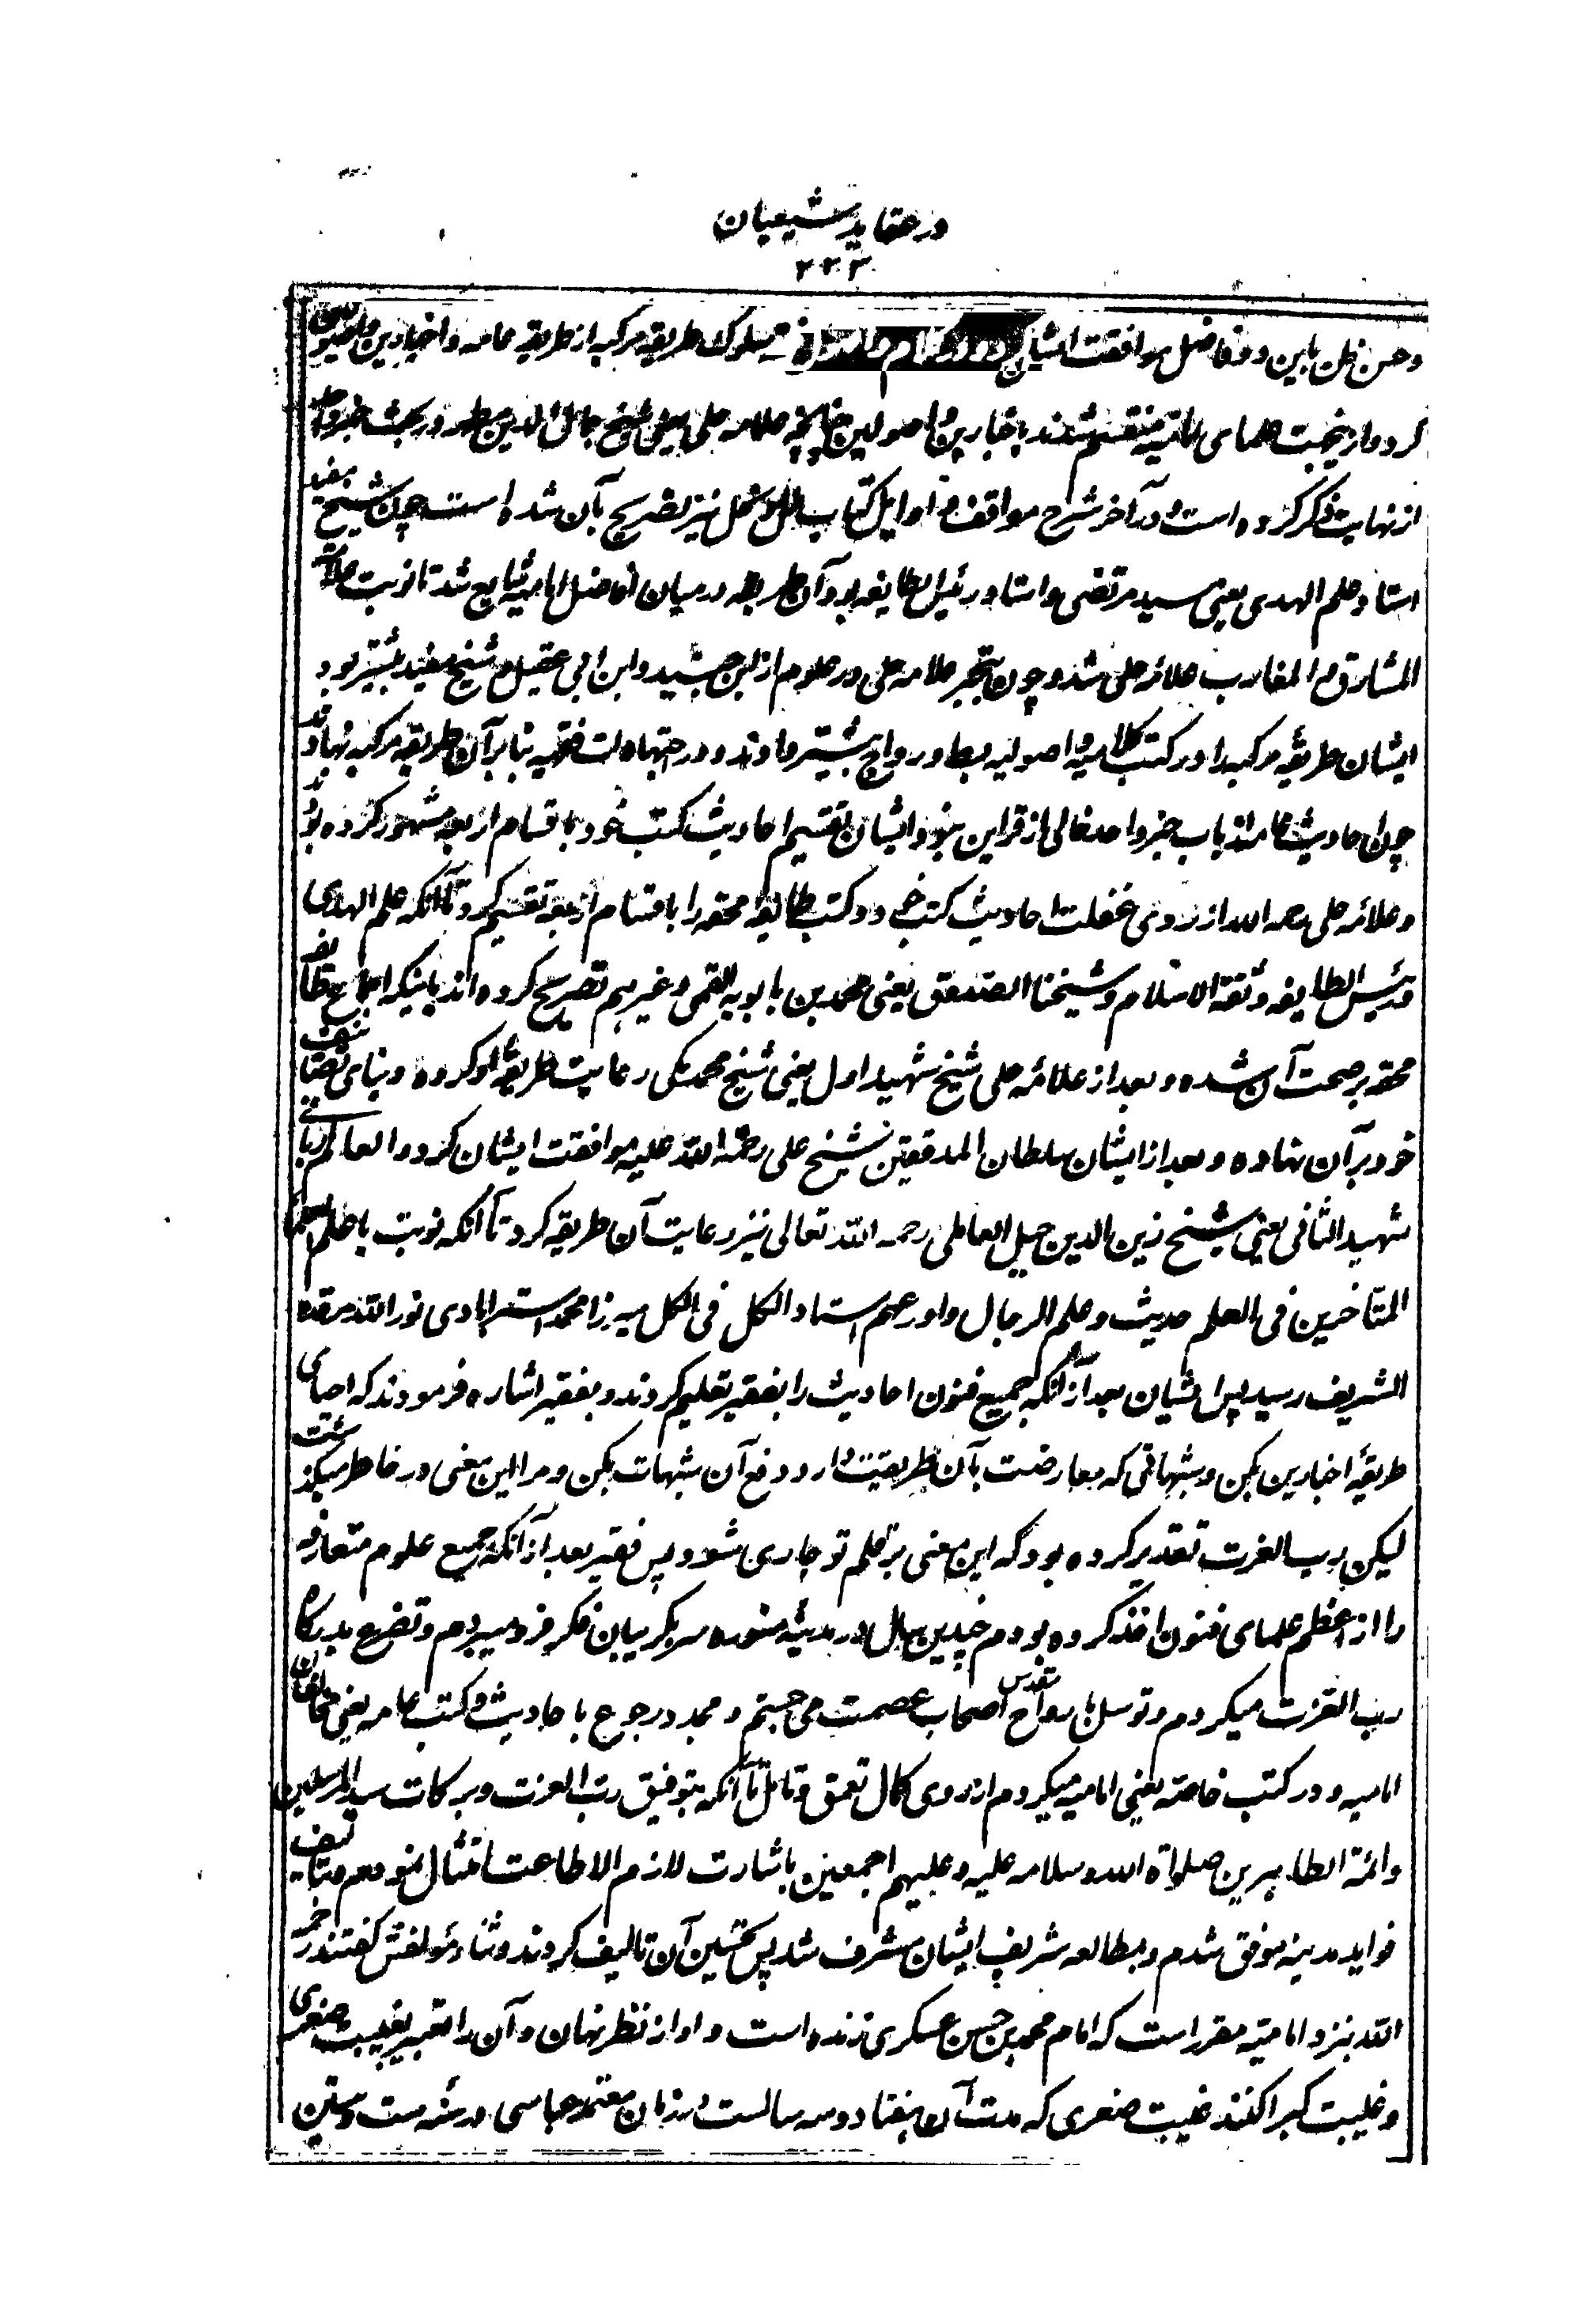 در عقاید شیعیان
۲۳۳
و حسن ظن باین دو فاضل موافقت ایشان مسلوک طریقه مرکبه از طریقه عامه و اخبارین و اصولیین
کرد و ازینجهت علمای امامیه منقسم شدند باخبارین و اصولیین چنانچه علامه حلی یعنی شیخ جمال الدین مطهر در بحث خبر واحد
از نهایت ذکر کرده است و در آخر شرح مواقف و اوایل کتاب ملل و نحل نیز تصریح بآن شده است چون شیخ مفید
استاد علم الهدی یعنی سید مرتضی و استاد رئیس الطایفه بود آن طریقه در میان افاضل امامیه شایع شد تا نوبت علامة
المشارق و المغارب علامه حلی شد و چون تبحر علامه حلی در علوم از ابن جنید و ابن ابی عقیل و شیخ مفید بیشتر بود
ایشان طریقه مرکبه را در کتب کلامیه و اصولیه بسط و رواج بیشتر دادند و در اجتهادات فقهیه بنا بر آن طریقه مرکبه نهادند
چون احادیث عامه از باب خبر واحد خالی از قراین بود ایشان تقسیم احادیث کتب خود باقسام اربعه مشهور کرده بودند
و علامه حلی رحمه الله از روی غفلت احادیث کتب خود و کتب طایفه محقه را باقسام اربعه تقسیم کرد تا آنکه علم الهدی
و رئیس الطایفه و ثقة الاسلام و شیخنا الصدوق یعنی محمد بن بابویه القمی و غیرهم تصریح کرده اند باینکه اجماع طایفه
محقه بر صحت آن شده و بعد از علامه حلی شیخ شهید اول یعنی شیخ محمد مکی رعایت طریقه او کرده و بنای تصانیف
خود بر آن نهاده و بعد از ایشان سلطان المدققین شیخ علی رحمة الله علیه موافقت ایشان کرد و العالم الربانی
شهید الثانی یعنی شیخ زین الدین جبل العاملی رحمه الله تعالی نیز رعایت آن طریقه کرد تا آنکه نوبت باعلم العلماء
المتاخرین فی العلم حدیث و علم الرجال و اورعهم استاد الکل فی الکل میرزا محمد استرابادی نور الله مرقده
الشریف رسید پس ایشان بعد از آنکه جمیع فنون احادیث را بفقیر تعلیم کردند و بفقیر اشاره فرمودند که احیای
طریقه اخبارین بکن و شبهاتی که معارضت بآن طریقت دارد دفع آن شبهات بکن و مرا این معنی در خاطر میگذشت
لیکن رب العزت تقدیر کرده بود که این معنی بر قلم تو جاری شود پس فقیر بعد از آنکه جمیع علوم متعارفه
را از اعظم علمای فنون اخذ کرده بودم چندین سال در مدینه منوره سر بگریبان فکر فرو میبردم و تضرع بدرگاه
رب العزت میکردم و توسل بارواح مقدس اصحاب عصمت می جستم و مجدد رجوع باحادیث و کتب عامه یعنی مخالفان
امامیه و در کتب خاصه یعنی امامیه میکردم از روی کمال تعمق و تامل تا آنکه بتوفیق رب العزت و برکات سید المرسلین
و ائمة الطاهرین صلواة الله و سلامه علیه و علیهم اجمعین باشارت لازم الاطاعت امتثال نمودم و بتالیف
فواید مدینه موفق شدم و بمطالعه شریف ایشان مشرف شد پس تحسین آن تالیف کردند و ثناء مؤلفش گفتند رحمه
الله بنزد امامیه مقرر است که امام محمد بن حسن عسکری زنده است و او از نظر نهان و آن را تعبیر بغیبت صغری
و غیبت کبرا کنند غیبت صغری که مدت آن هفتاد و سه سالست در زمان معتمد عباسی در سنه ست و ستین